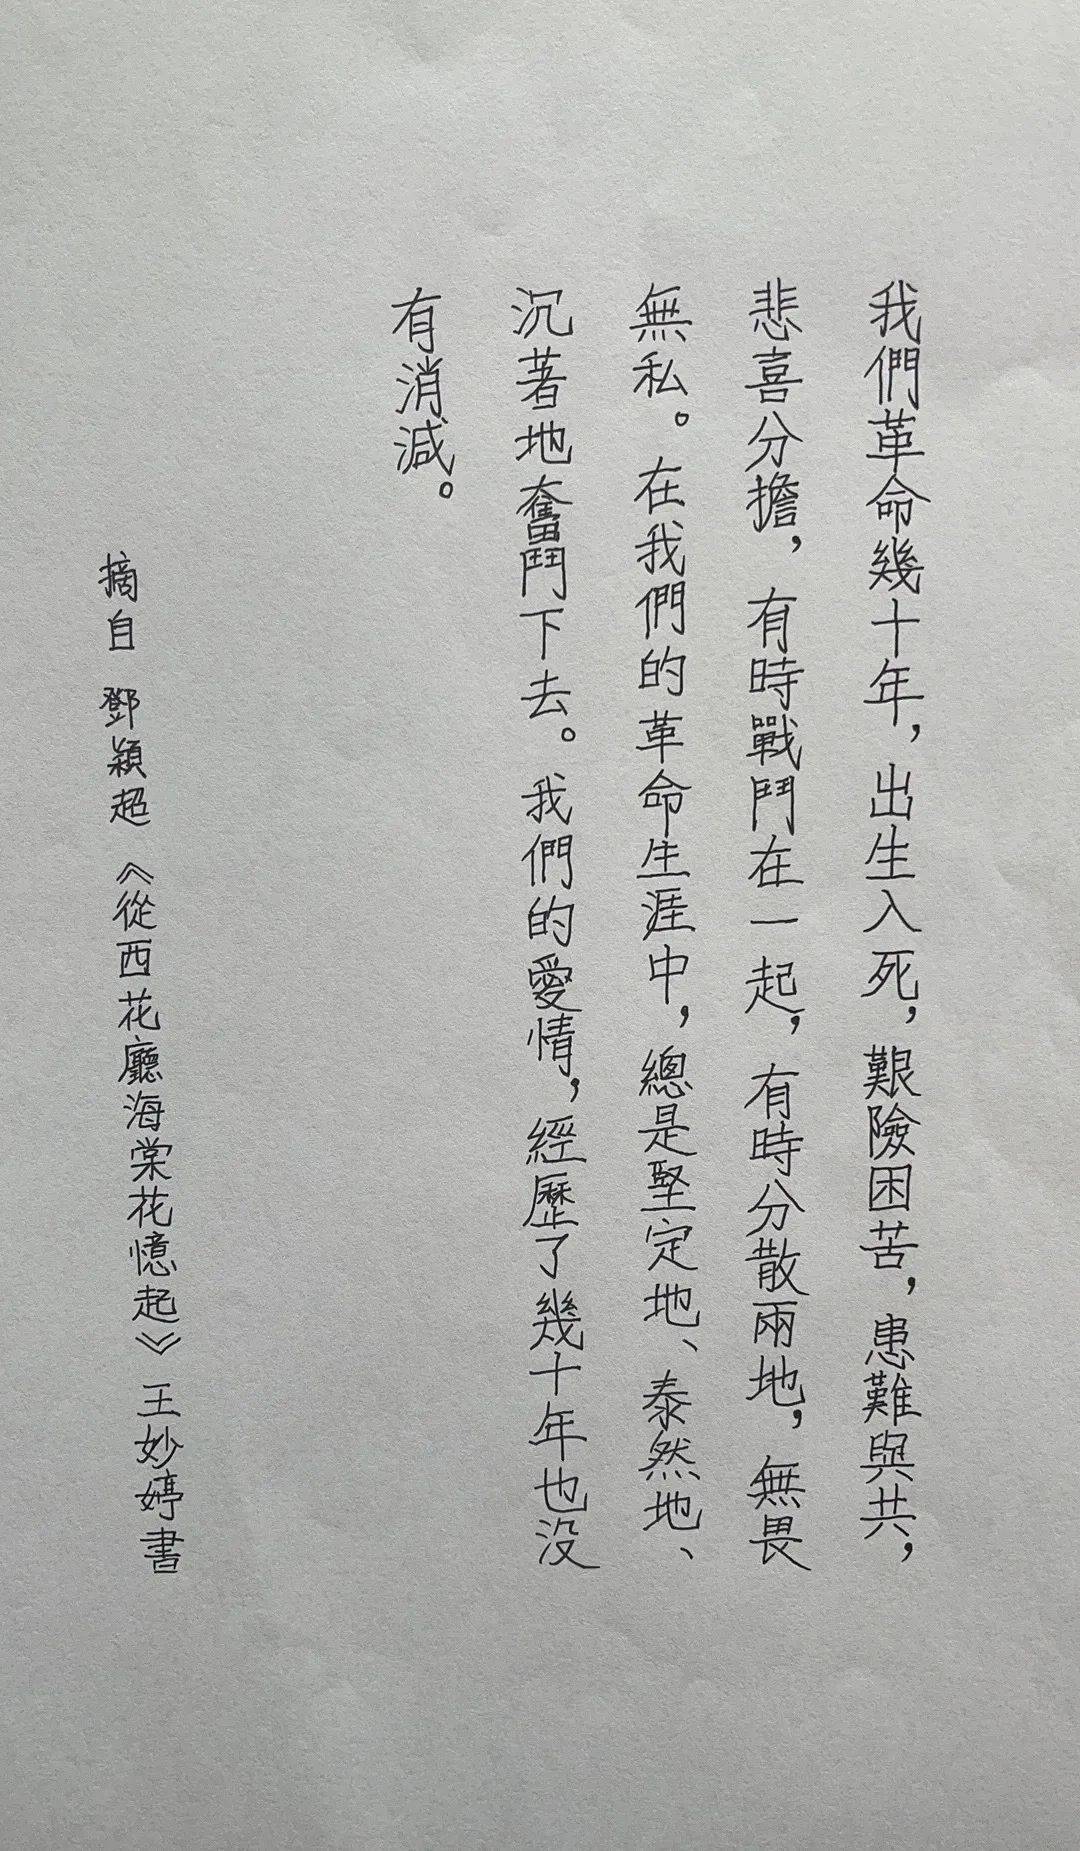 我們革命幾十年，出生入死，艱險困苦，患難與共，
悲喜分擔，有時戰鬥在一起，有時分散兩地，無畏
無私。在我們的革命生涯中，總是堅定地、泰然地、
沉著地奮鬥下去。我們的愛情，經歷了幾十年也没
有消減。
摘自 鄧穎超 《從西花廳海棠花憶起》 王妙婷書